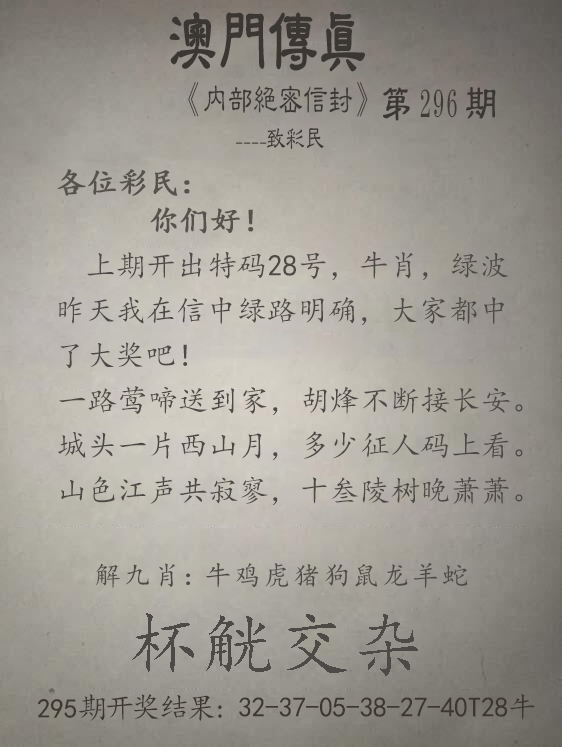 澳門傳眞
《内部絕密信封》第296期
----致彩民
各位彩民：
你们好！
上期开出特码28号，牛肖，绿波
昨天我在信中绿路明确，大家都中
了大奖吧！
一路莺啼送到家，胡烽不断接长安。
城头一片西山月，多少征人码上看。
山色江声共寂寥，十叁陵树晚萧萧。
解九肖：牛鸡虎猪狗鼠龙羊蛇
杯觥交杂
295期开奖结果：32-37-05-38-27-40T28牛